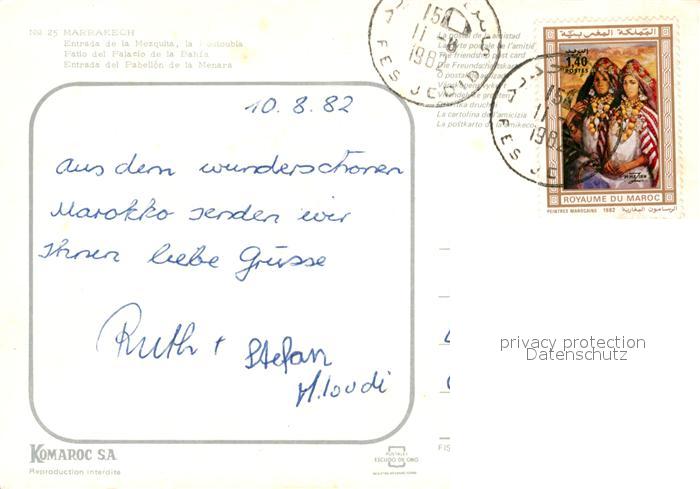 No 25 MARRAKECH
Entrada de la Mezquita, la Koutoubia
Patio del Palacio de la Bahía
Entrada del Pabellón de la Menara
10.8.82
aus dem wunderschönen
Marokko senden wir
Ihnen liebe Grüsse
Ruth + Stefan
M.loudi
KOMAROC S.A.
Reproduction interdite
POSTALES
ESCUDO DE ORO
La postal de la amistad
La carte postale de l'amitié
The friendship post card
Die Freundschaftskarte
La cartolina dell'amicizia
La postkarto de la amikeco
FES JEDID
15
11 8
1982
FES JE
15
11
198
المملكة المغربية
1,40
POSTES
ROYAUME DU MAROC
PEINTRES MAROCAINS 1982 الرسامون المغاربة
privacy protection
Datenschutz
FIS